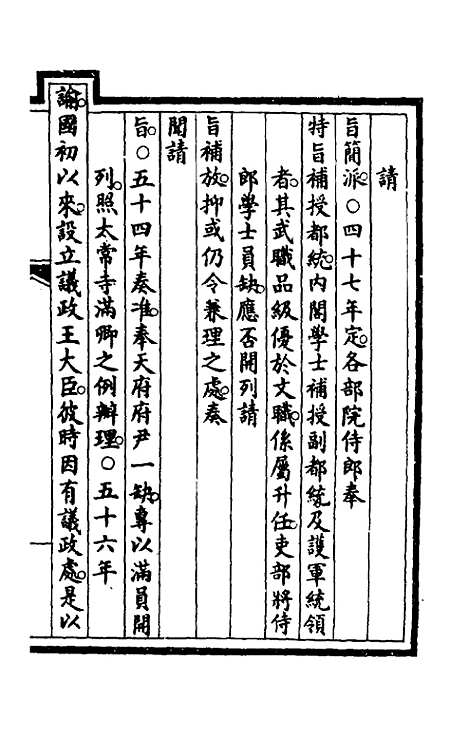 請
旨簡派。○四十七年定。各部院侍郎奉
特旨補授都統。內閣學士補授副都統及護軍統領
者。其武職品級優於文職。係屬升任。吏部將侍
郎學士員缺。應否開列請
旨補放。抑或仍令兼理之處。奏
聞請
旨。○五十四年奏准。奉天府府尹一缺。專以滿員開
列。照太常寺滿卿之例辦理。○五十六年
諭。國初以來。設立議政王大臣。彼時因有議政處。是以